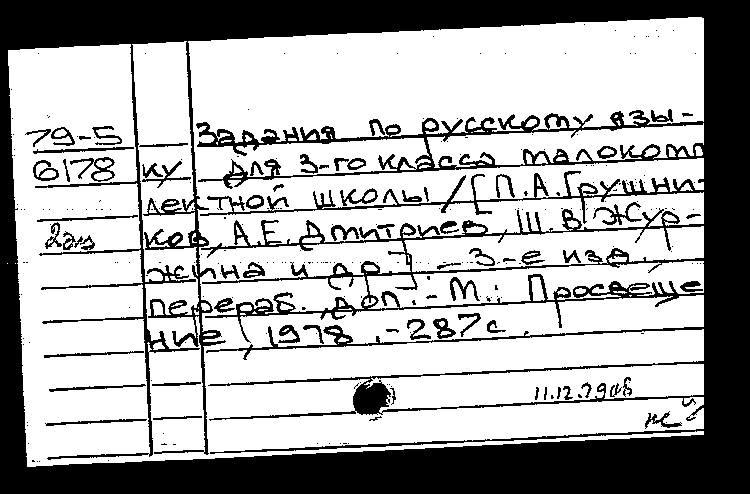 79-5 Задания по русскому язы-
6178 ку для 3-го класса малокомп
лектной школы / [П.А.Грушни-
2экз ков, А.Е.Дмитриев, Ш.В.Жур-
жина и др.]. - 3-е изд.,
перераб., доп. - М.: Просвеще
ние, 1978. - 287с.
11.12.79